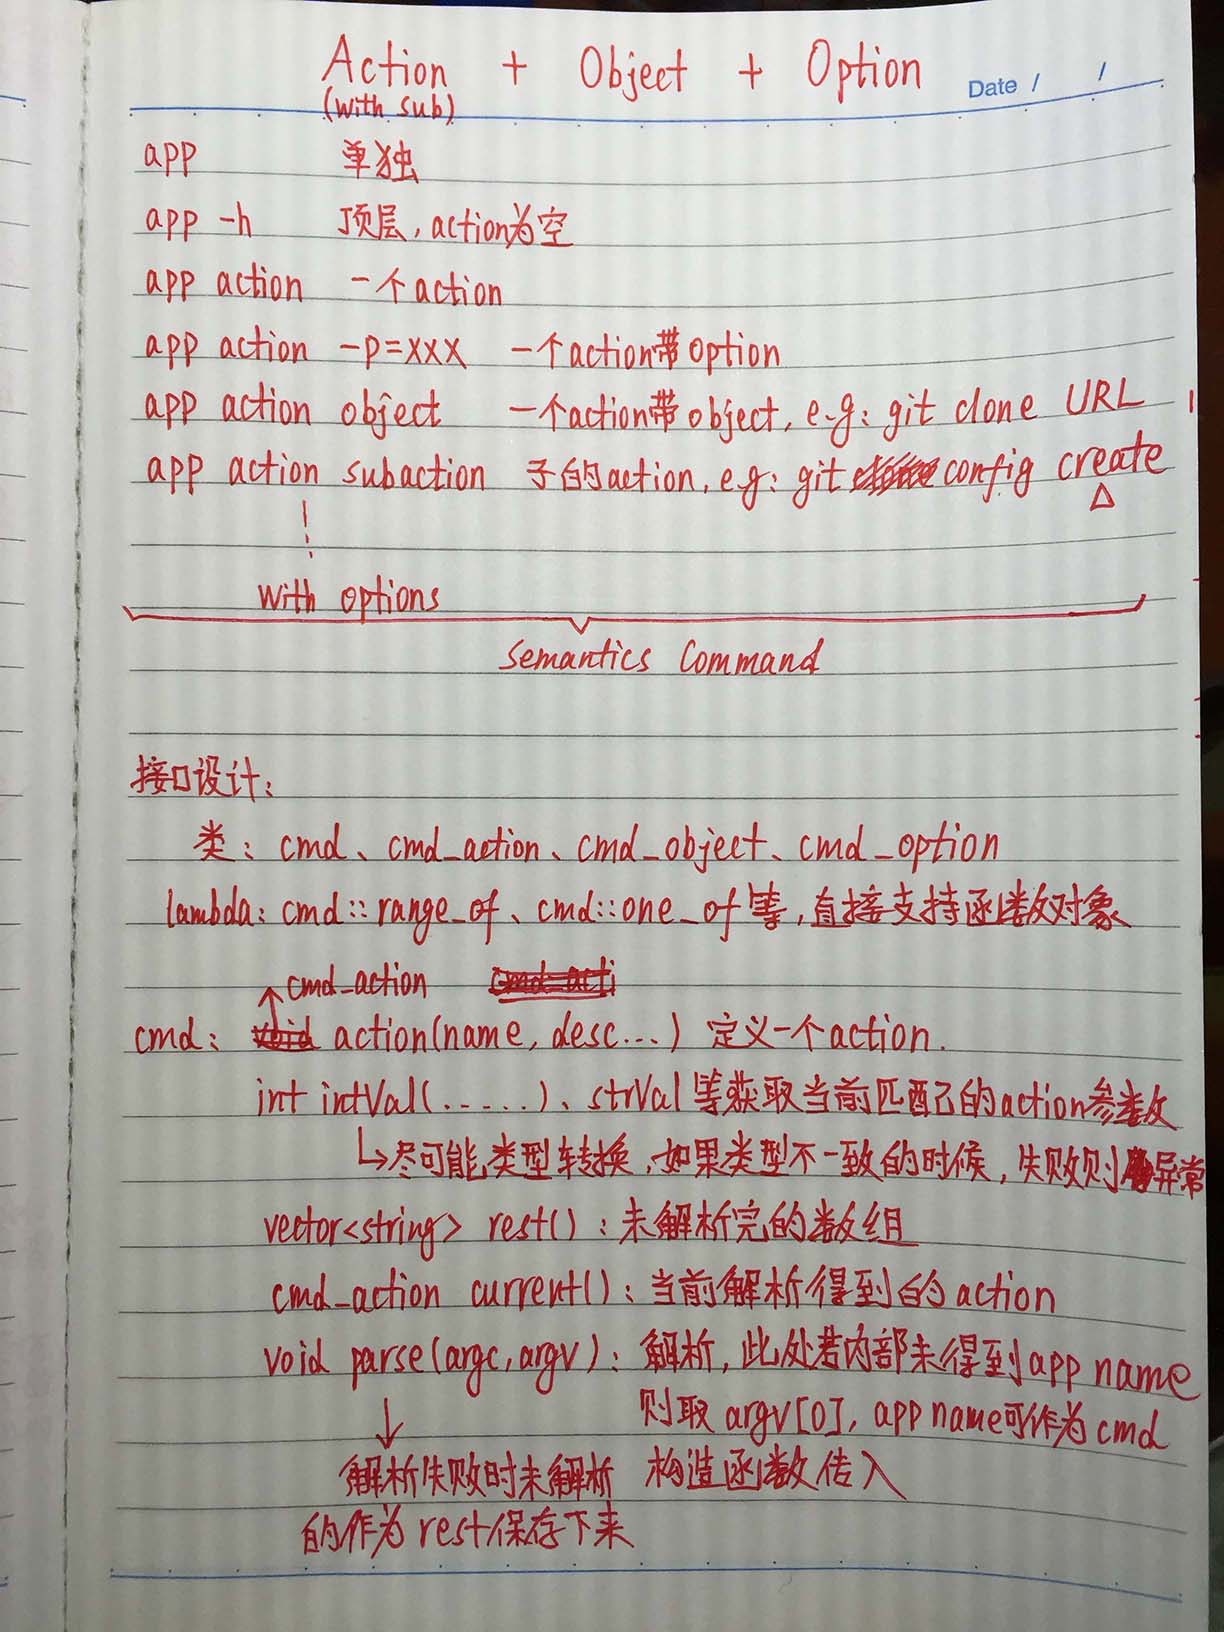 Action + Object + Option Date / /
(with sub)
app 单独
app -h 顶层，action为空
app action 一个action
app action -p=xxx 一个action带option
app action object 一个action带object, e.g: git clone URL
app action subaction 子的action, e.g: git config create
with options
Semantics Command
接口设计：
类：cmd、cmd_action、cmd_object、cmd_option
lambda: cmd::range_of、cmd::one_of等，直接支持函数对象
cmd_action cmd-acti
cmd: void action(name, desc...) 定义一个action.
int intVal(......)、strVal等获取当前匹配己的action参数
尽可能类型转换，如果类型不一致的时候，失败则异常
vector<string> rest()：未解析完的数组
cmd_action current()：当前解析得到的action
void parse(argc, argv)：解析，此处若内部未得到app name
则取 argv[0], app name可作为cmd
解析失败时未解析 构造函数传入
的作为rest保存下来